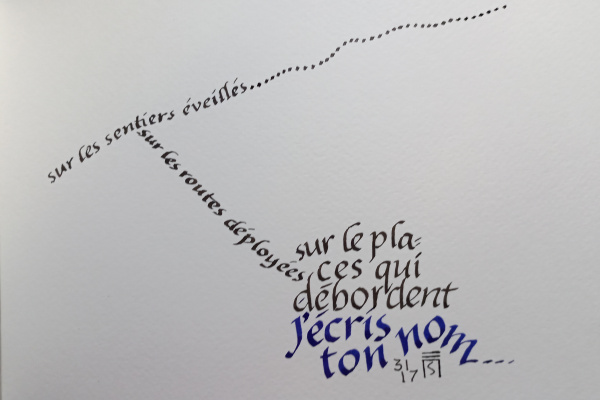 sur les sentiers éveillés...
sur les routes déployées
sur le pla=
ces qui
débordent
j'écris
ton nom...
31
17